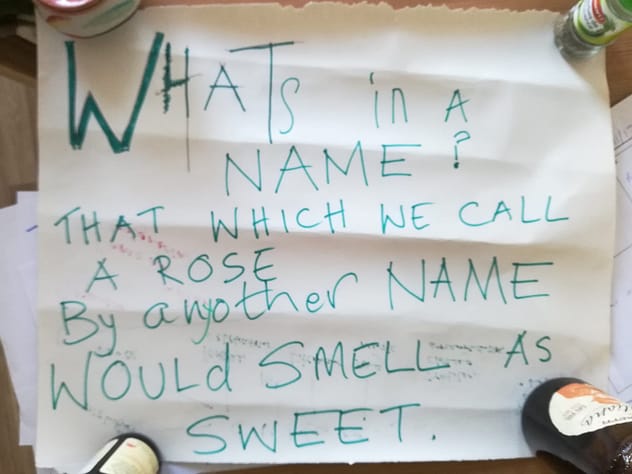 WHATS in A
NAME?
THAT WHICH WE CALL
A ROSE
By anyother NAME
WOULd SMELL AS
SWEET.